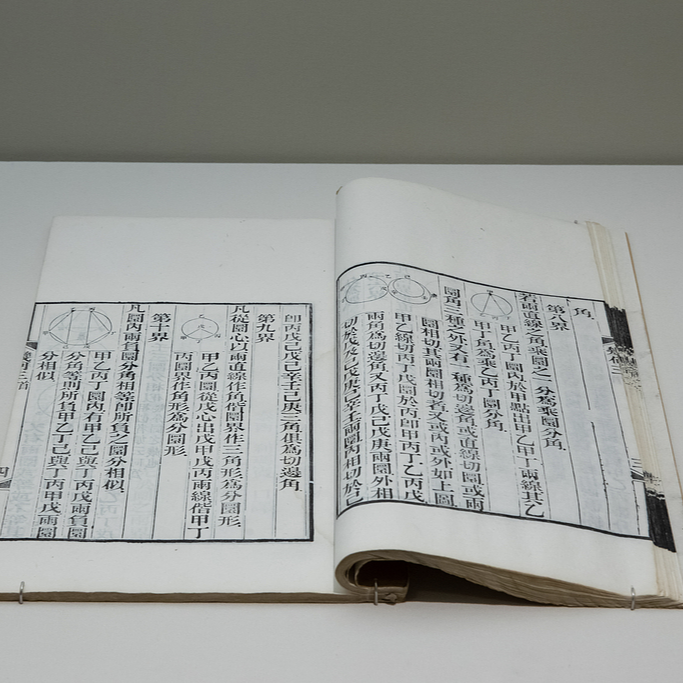 角
第八界
若兩直線之角乘圜之一分為乘圜分角
甲乙丙丁圜內於甲點出甲乙甲丁兩線其乙
甲丁角為乘乙丙丁圜分角
圜角三種之外又有一種為切邊角或直線切圜或兩
圜相切其兩圜相切者又或內或外如上圖
甲乙線切丙丁戊圜於丙即甲丙丁乙丙戊
兩角為切邊角又丙丁戊己戊庚兩圜外相
即丙戊己戊己辛壬己庚三角俱為切邊角
第九界
凡從圜心以兩直線作角偕圜界作三角形為分圜形
甲乙丙圜從戊心出戊甲戊丙兩線偕甲丁
丙圜界作角形為分圜形
第十界
凡圜內兩負圜分角相等即所負之圜分相似
甲乙丙丁圜內有甲乙己與丁丙戊兩負圜
分角等則所負甲乙丁己與丁丙甲戊兩圜
分相似